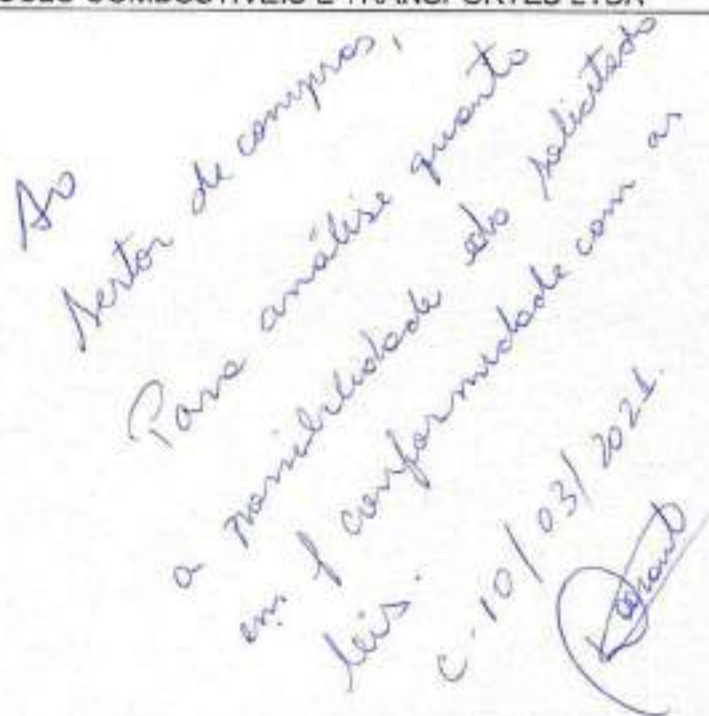 COMBUSTÍVEIS E TRANSPORTES LTDA
Ao
Setor de compras,
Para análise quanto
a possibilidade do solicitado
em conformidade com as
leis.
C. 10/03/2021.